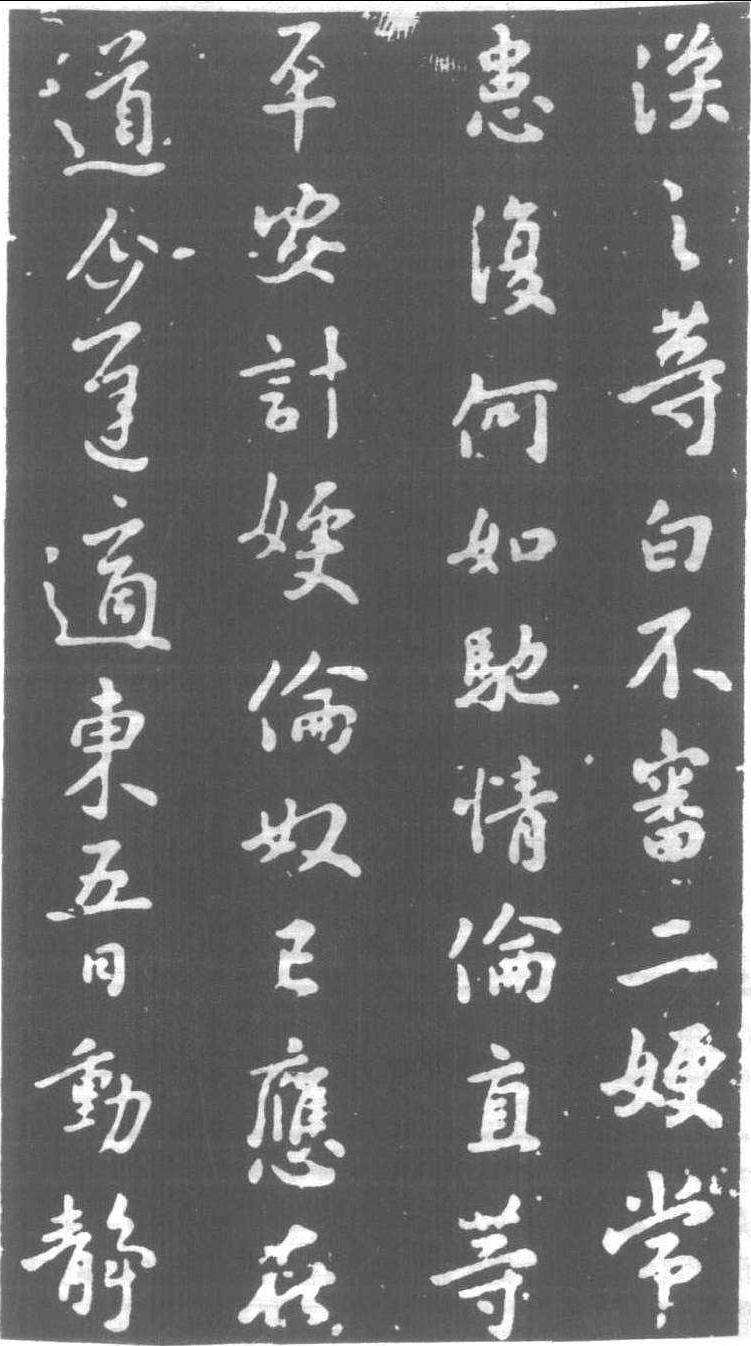 渙之等白不審二嫂常
患復何如馳情倫直等
平安計嫂倫奴已應在
道企遲適東五日動靜